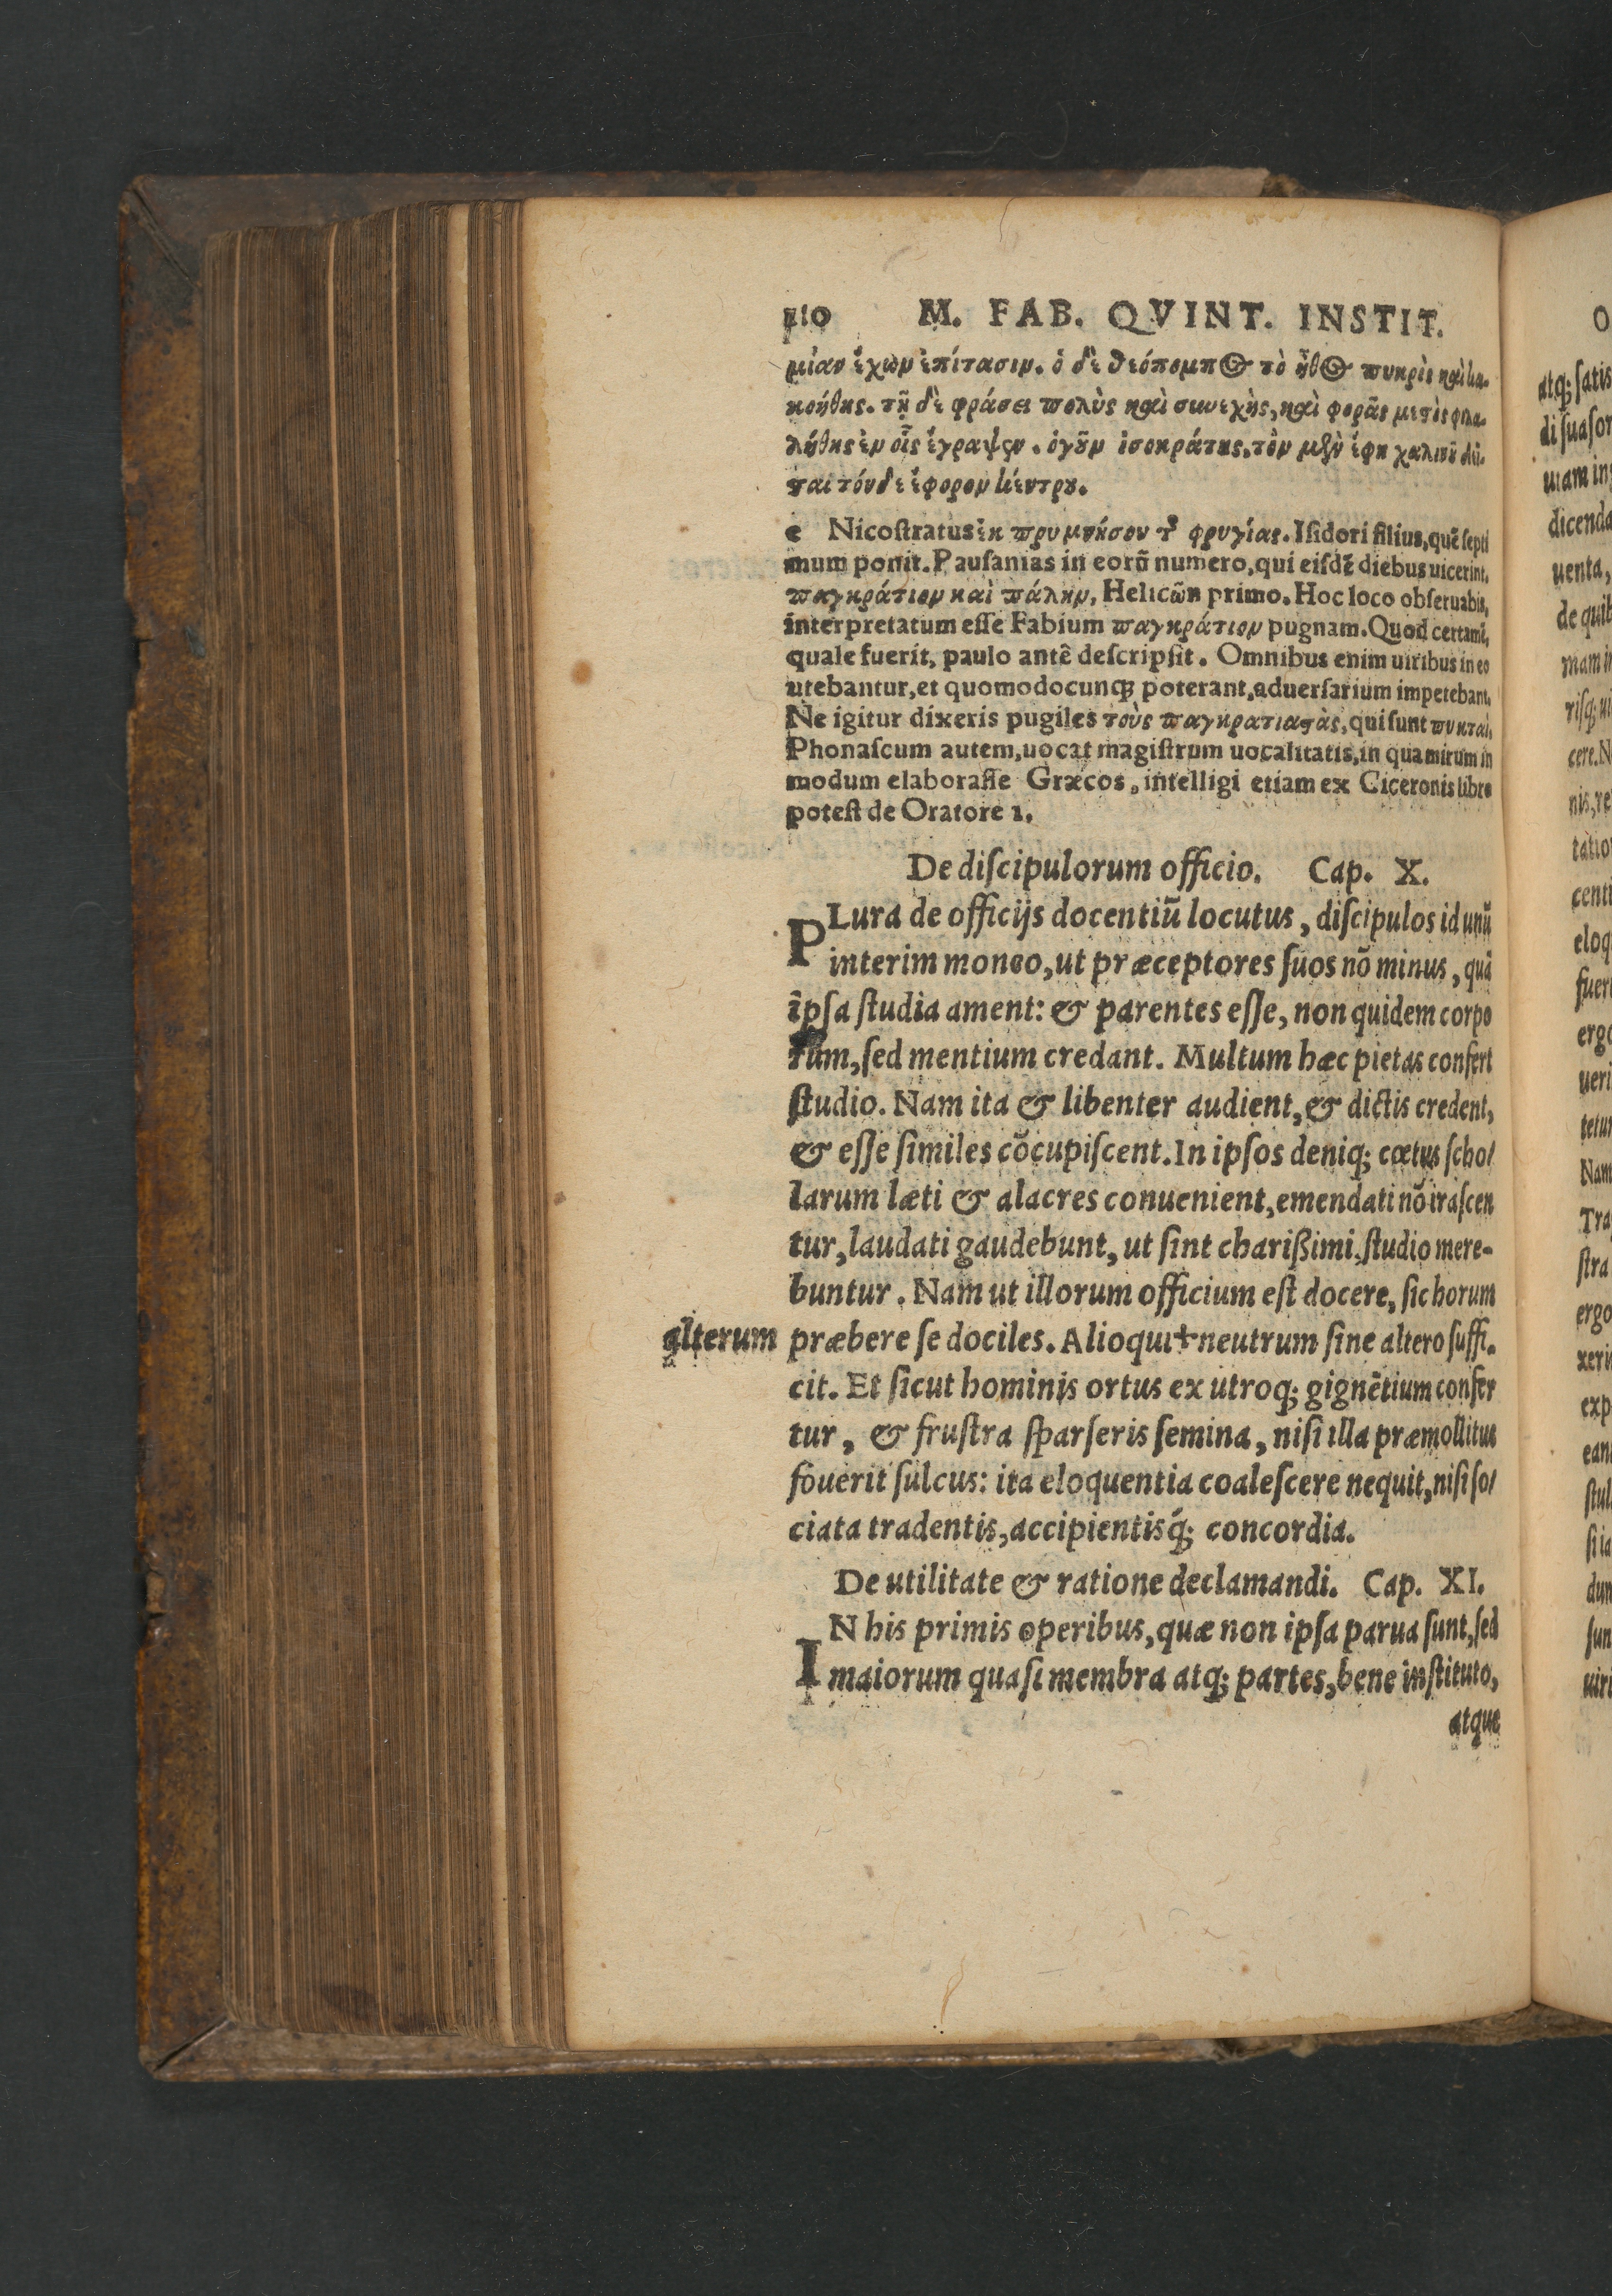 110 M. FAB. QVINT. INSTIT.
μίαν ἔχωμ ἐπίτασιμ. ὁ δὲ θεόπομπος τὸ ἦθος πικρὸς καὶ κα-
κοήθης. τῇ δὲ φράσει πολὺς καὶ συνεχὴς, καὶ φορᾶς μεστὸς φιλα-
λήθης ἐμ οἷς ἔγραψεν. ὁ γοῦμ ἰσοκράτης. τὸμ μὲν ἔφη χαλινοῦ δεῖ-
ται τόνδε ἔφορομ κέντρου.
e Nicoſtratus ἐκ πρυμνήσου τ φρυγίας. Iſidori filius, quẽ ſepti
mum ponit. Pauſanias in eorũ numero, qui eiſdẽ diebus uicerint,
παγκράτιομ καὶ πάλημ, Helicω̃n primo. Hoc loco obſeruabis,
interpretatum eſſe Fabium παγκράτιομ pugnam. Quod certamẽ,
quale fuerit, paulo antê deſcripſit. Omnibus enim uiribus in eo
utebantur, et quomodocunq; poterant, aduerſarium impetebant.
Ne igitur dixeris pugiles τοὺς παγκρατιαστὰς, qui ſunt πυκταὶ.
Phonaſcum autem, uocat magiſtrum uocalitatis, in qua mirum in
modum elaboraſſe Græcos, intelligi etiam ex Ciceronis libro
poteſt de Oratore 1.
De diſcipulorum officio. Cap. X.
PLura de officijs docentiũ locutus, diſcipulos id unũ
interim moneo, ut præceptores ſuos nõ minus, quã
ipſa ſtudia ament: & parentes eſſe, non quidem corpo
rum, ſed mentium credant. Multum hæc pietas confert
ſtudio. Nam ita & libenter audient, & dictis credent,
& eſſe ſimiles cõcupiſcent. In ipſos deniq; cœtus ſcho/
larum læti & alacres conuenient, emendati nõ iraſcen
tur, laudati gaudebunt, ut ſint chariſſimi, ſtudio mere-
buntur. Nam ut illorum officium eſt docere, ſic horum
alterum præbere ſe dociles. Alioqui + neutrum ſine altero ſuffi-
cit. Et ſicut hominis ortus ex utroq; gignẽtium confer
tur, & fruſtra ſparſeris ſemina, niſi illa præmollitus
fouerit ſulcus: ita eloquentia coaleſcere nequit, niſi ſo/
ciata tradentis, accipientisq́; concordia.
De utilitate & ratione declamandi. Cap. XI.
IN his primis operibus, quæ non ipſa parua ſunt, ſed
maiorum quaſi membra atq; partes, bene inſtituto,
atque